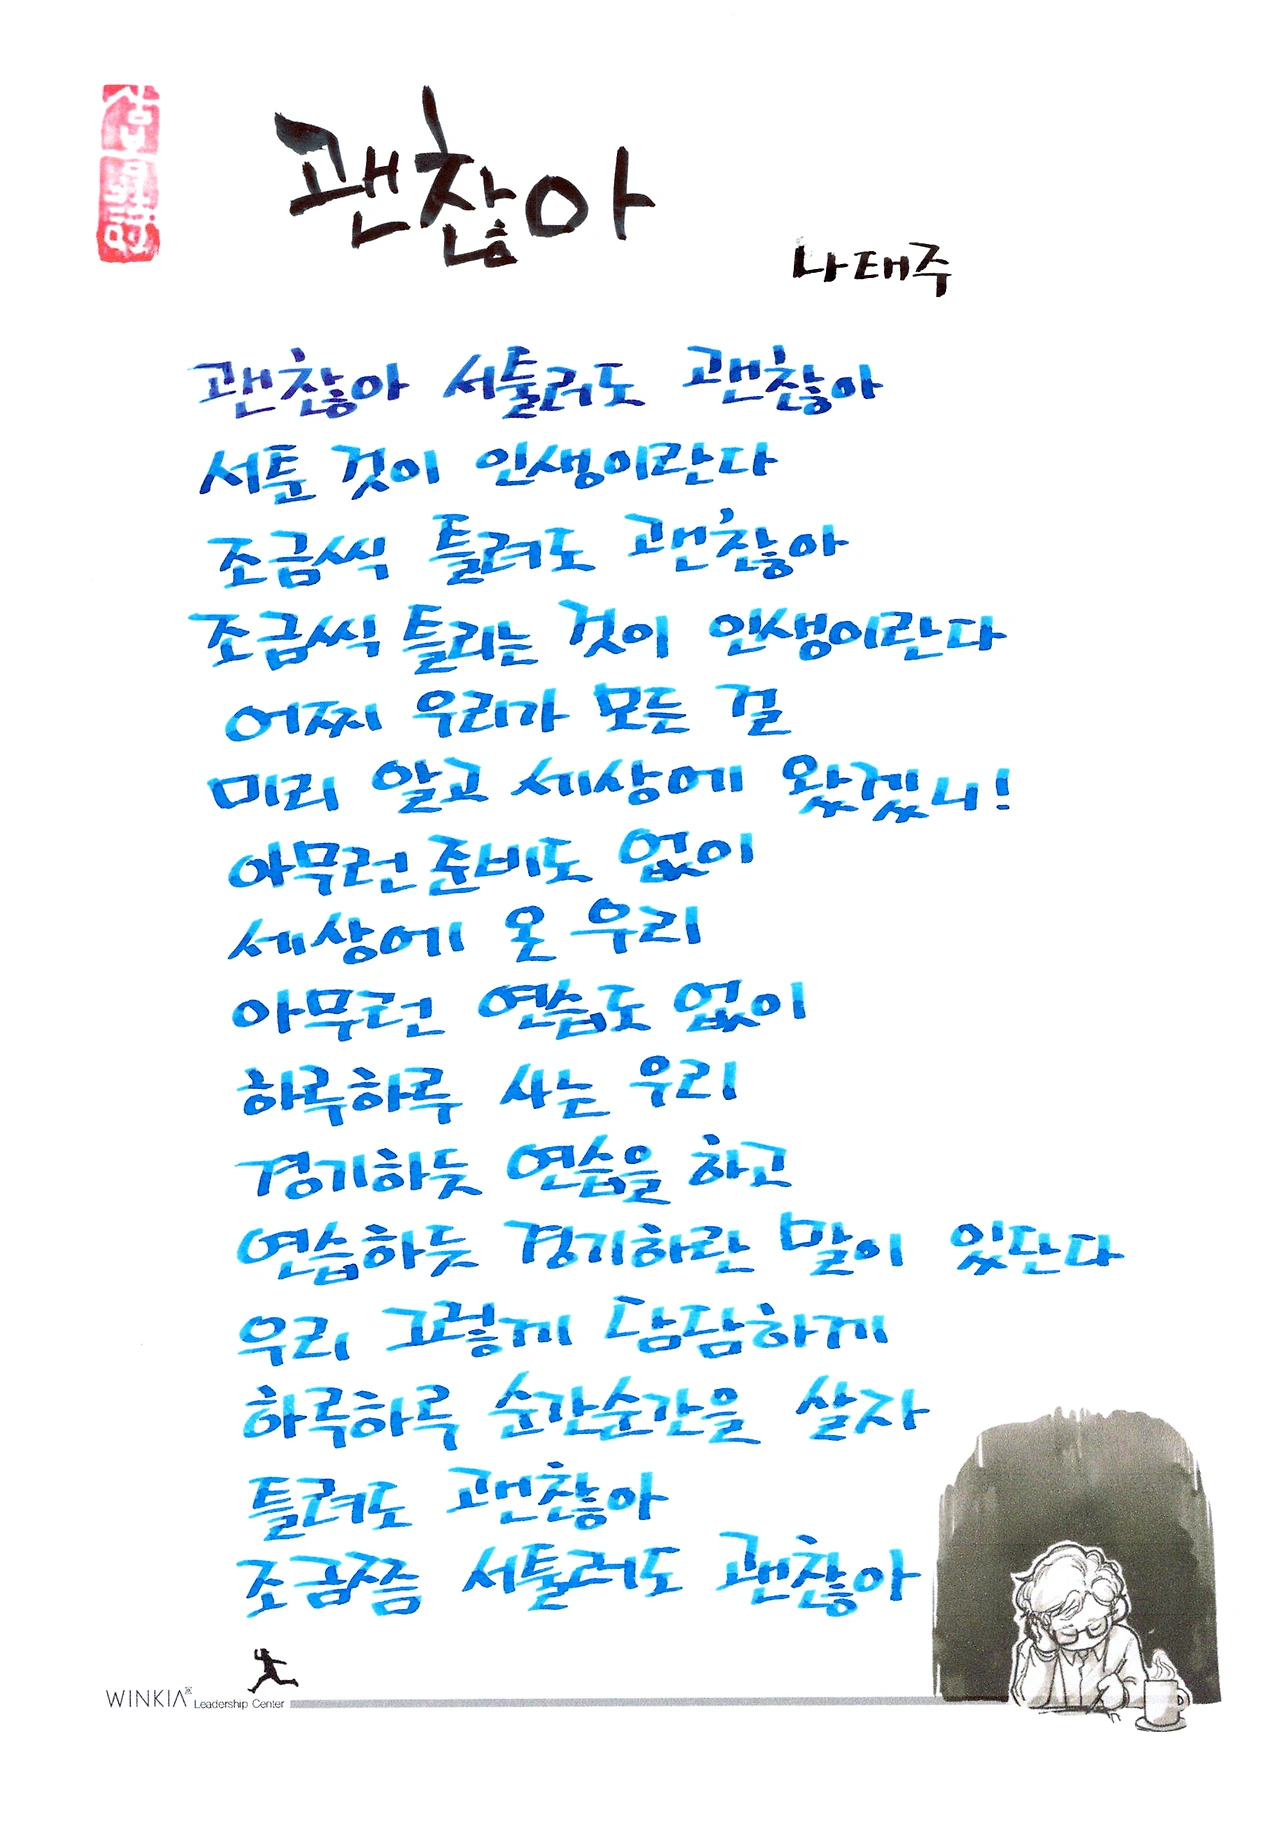 괜찮아
나태주
괜찮아 서툴러도 괜찮아
서툰 것이 인생이란다
조금씩 틀려도 괜찮아
조금씩 틀리는 것이 인생이란다
어찌 우리가 모든 걸
미리 알고 세상에 왔겠니!
아무런 준비도 없이
세상에 온 우리
아무런 연습도 없이
하루하루 사는 우리
경기하듯 연습을 하고
연습하듯 경기하란 말이 있단다
우리 그렇게 담담하게
하루하루 순간순간을 살자
틀려도 괜찮아
조금쯤 서툴러도 괜찮아
WINKIA Leadership Center